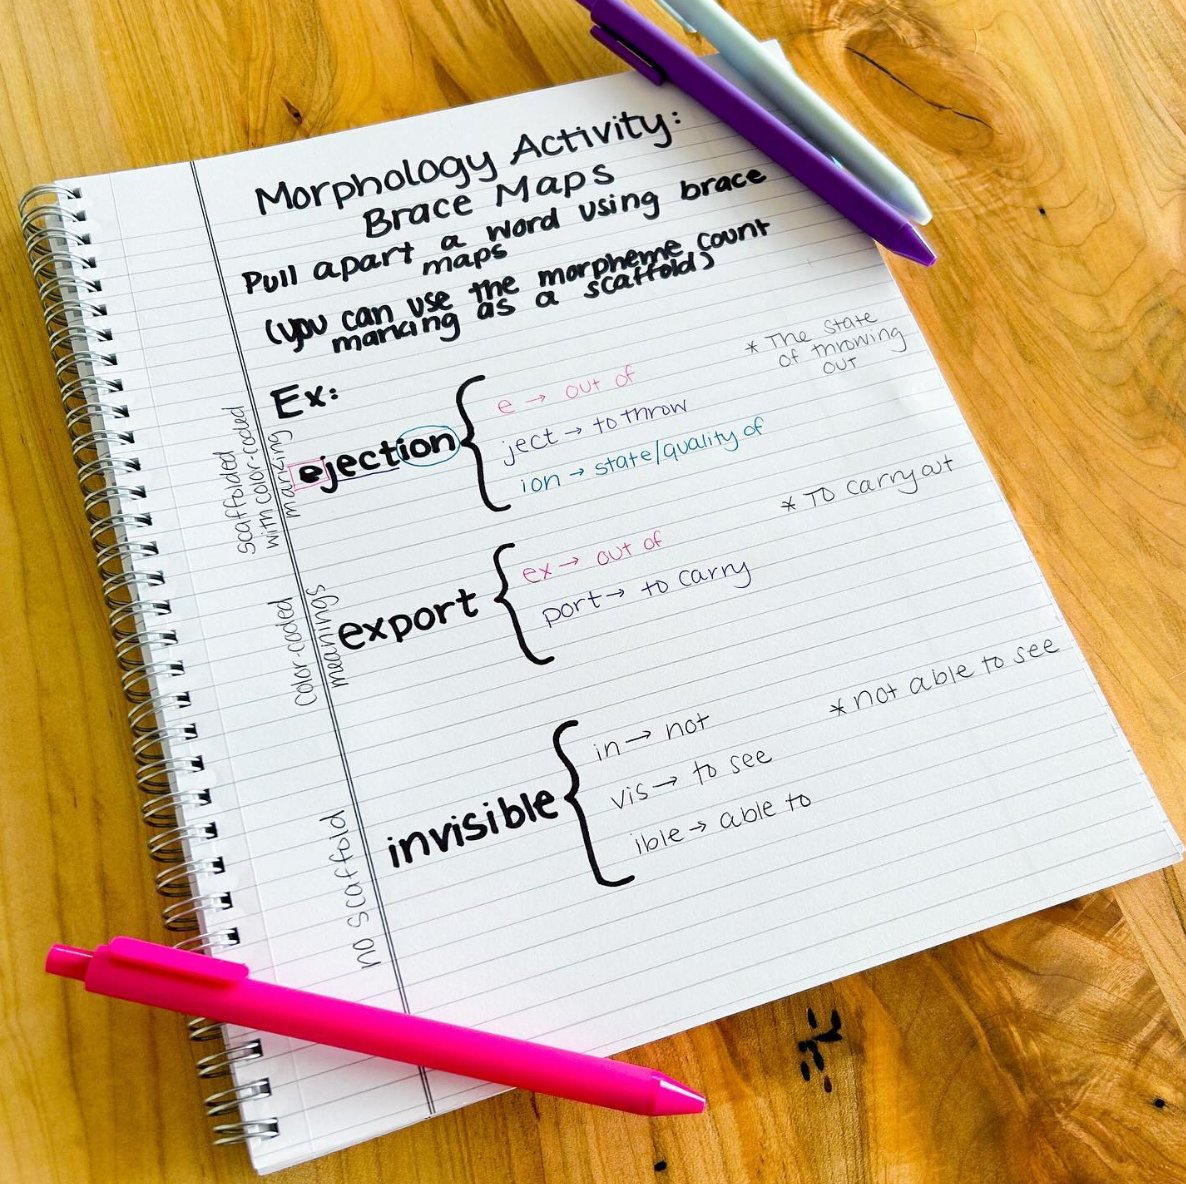 Morphology Activity:
Brace Maps
Pull apart a word using brace
maps
(you can use the morpheme count
marking as a scaffold)
Ex:
scaffolded
with color-coded
marking
ejection
e → out of
ject → to throw
ion → state/quality of
* The state
of throwing
out
color-coded
meanings
export
ex → out of
port → to carry
* To carry out
no scaffold
invisible
in → not
vis → to see
ible → able to
* not able to see